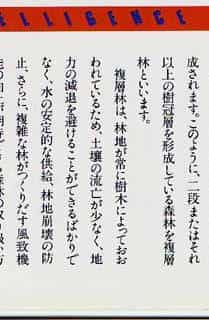 ELLIGENCE
成されます。このように、二段またはそれ
以上の樹冠層を形成している森林を複層
林といいます。
複層林は、林地が常に樹木によっておお
われているため、土壌の流亡が少なく、地
力の減退を避けることができるばかりで
なく、水の安定的な供給、林地崩壊の防
止、さらに、複雑な林がつくりだす風致機